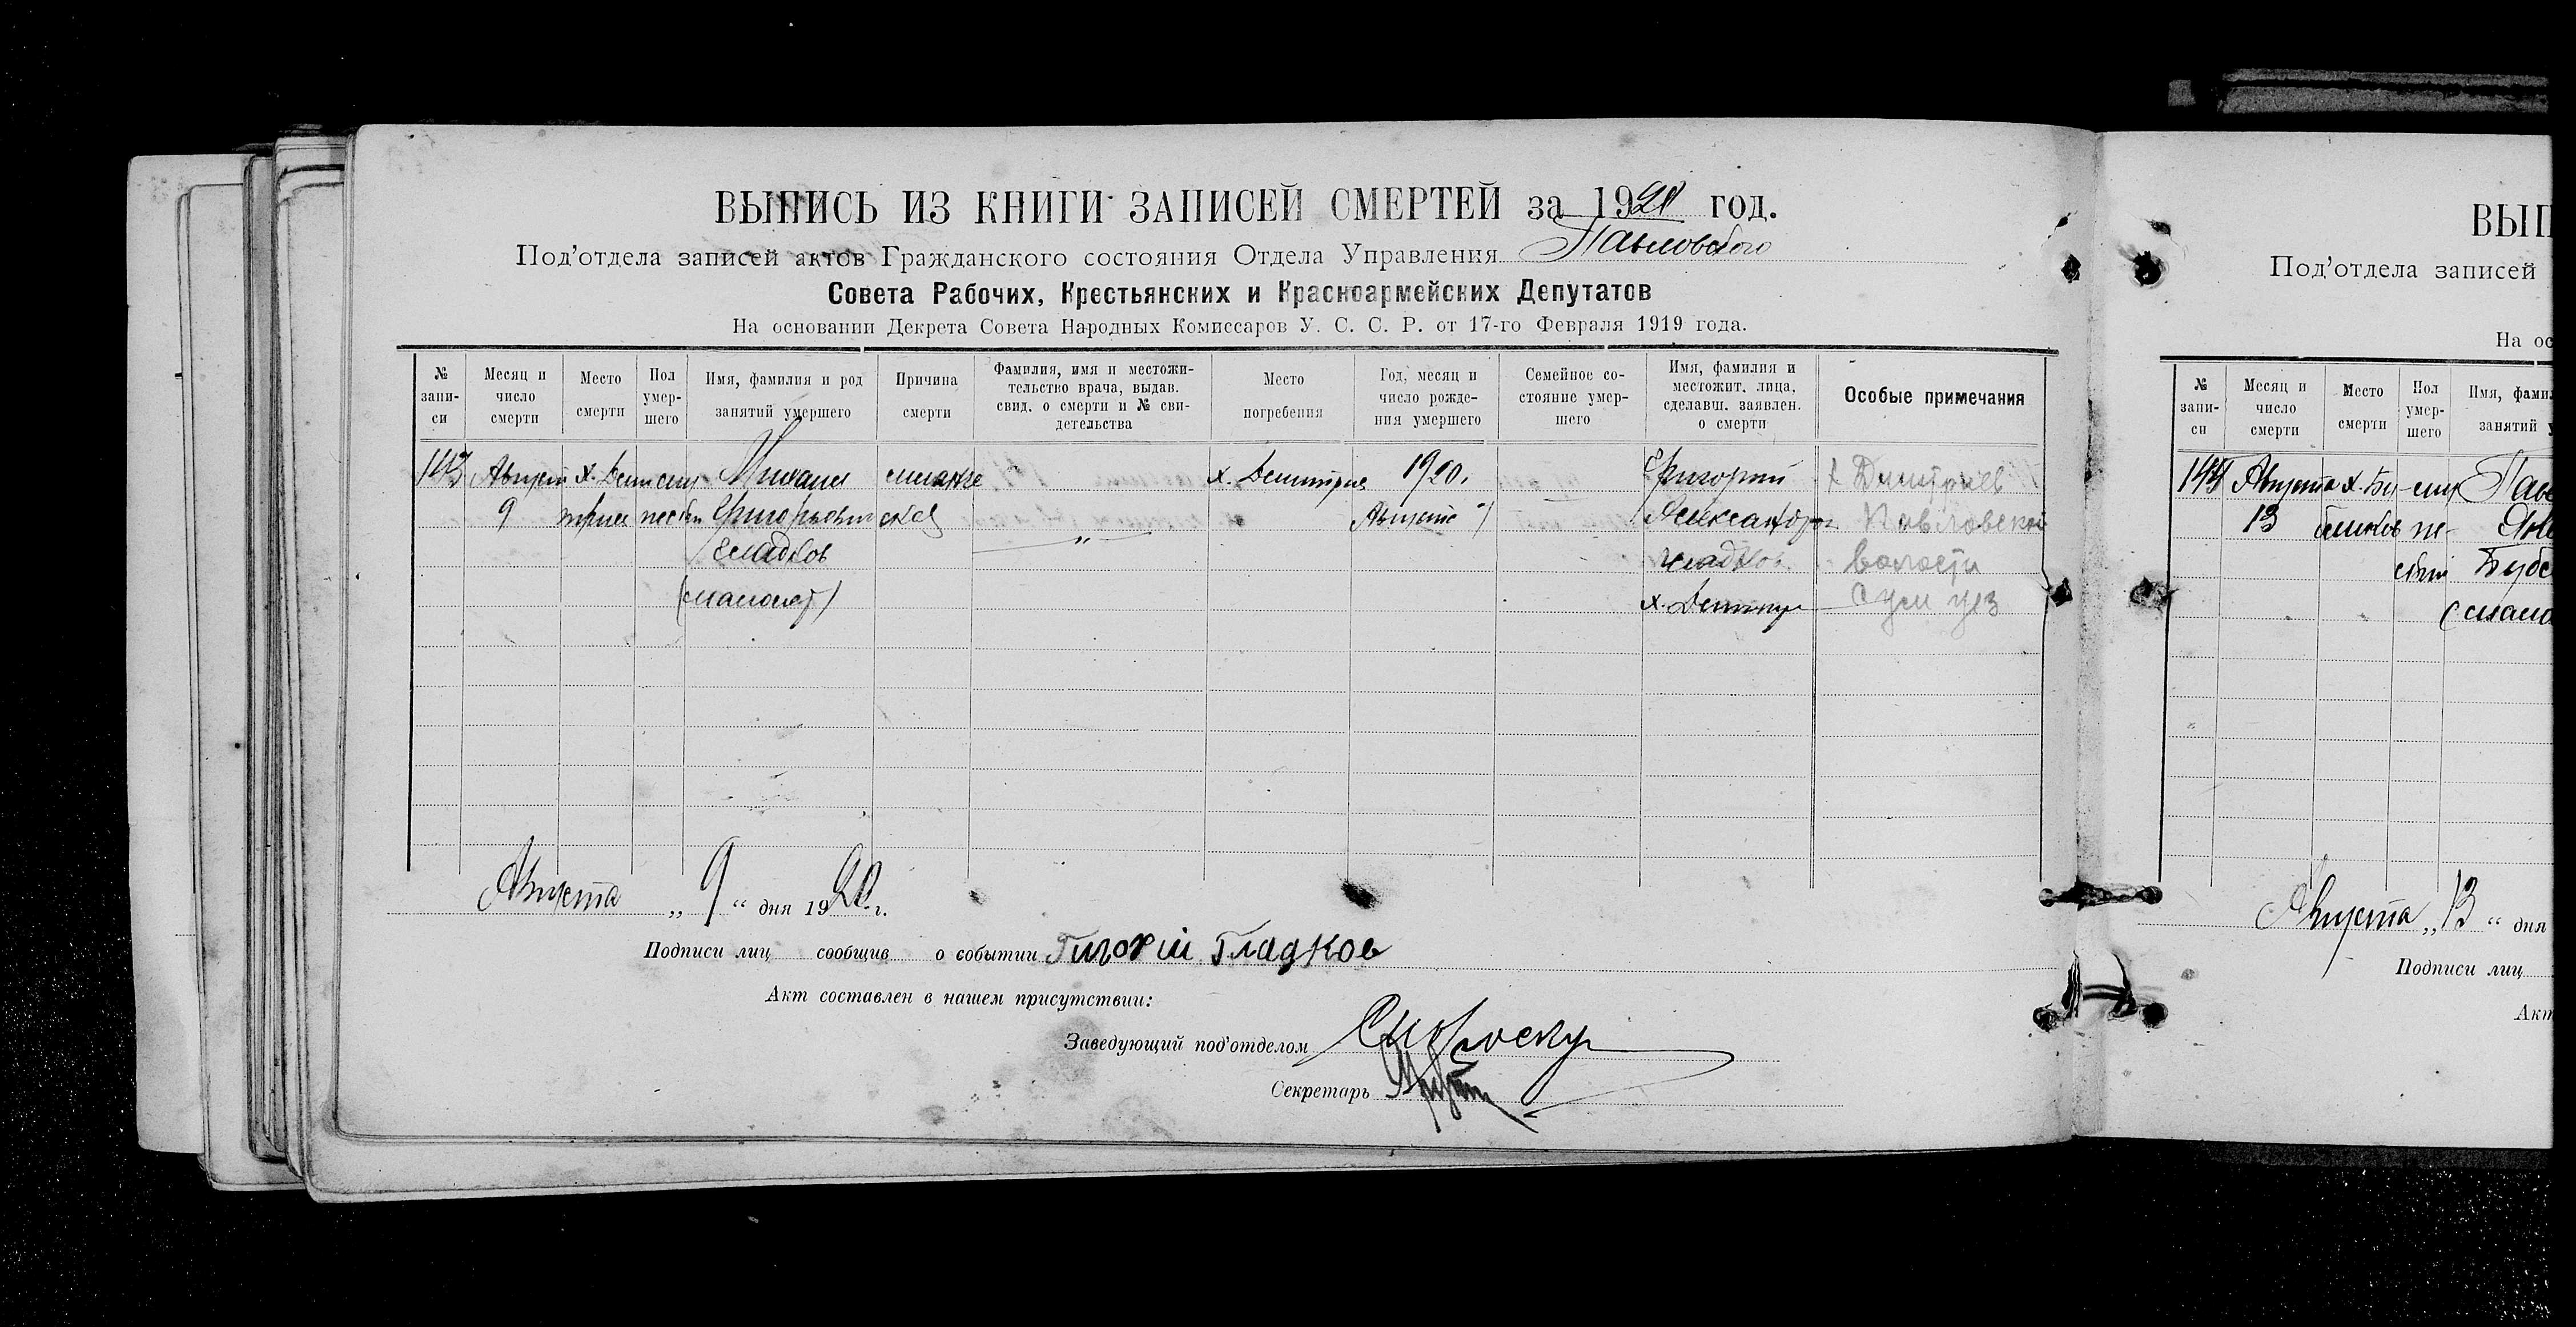 ВЫПИСЬ ИЗ КНИГИ ЗАПИСЕЙ СМЕРТЕЙ за 1920 год.
Под'отдела записей актов Гражданского состояния Отдела Управления Павловского
Совета Рабочих, Крестьянских и Красноармейских Депутатов
На основании Декрета Совета Народных Комиссаров У. С. С. Р. от 17-го Февраля 1919 года.
№ запи-си
Месяц и число смерти
Место смерти
Пол умер-шего
Имя, фамилия и род занятий умершего
Причина смерти
Фамилия, имя и местожи-тельство врача, выдав. свид. о смерти и № сви-детельства
Место погребения
Год, месяц и число рожде-ния умершего
Семейное со-стояние умер-шего
Имя, фамилия и местожит. лица, сделавш. заявлен. о смерти
Особые примечания
143 Август х. Дми Михаил х. Дмитрие 1920. Григорий х Дмитриев
9 трие Григорьевич Август Александр Павловской
Гладков " Гладков волости
(малолет) х. Дмитр Сум уез
Августа „ 9 “ дня 1920 г.
Подписи лиц сообщив о событии Гигорій Гладков
Акт составлен в нашем присутствии:
Заведующий под'отделом
Секретарь
ВЫП
Под'отдела записей
На ос
№ запи-си
Месяц и число смерти
Место смерти
Пол умер-шего
Имя, фами
занятий у
144 Августа х. Паве
13
(мало
Августа „ 13 “ дня
Подписи лиц
Акт